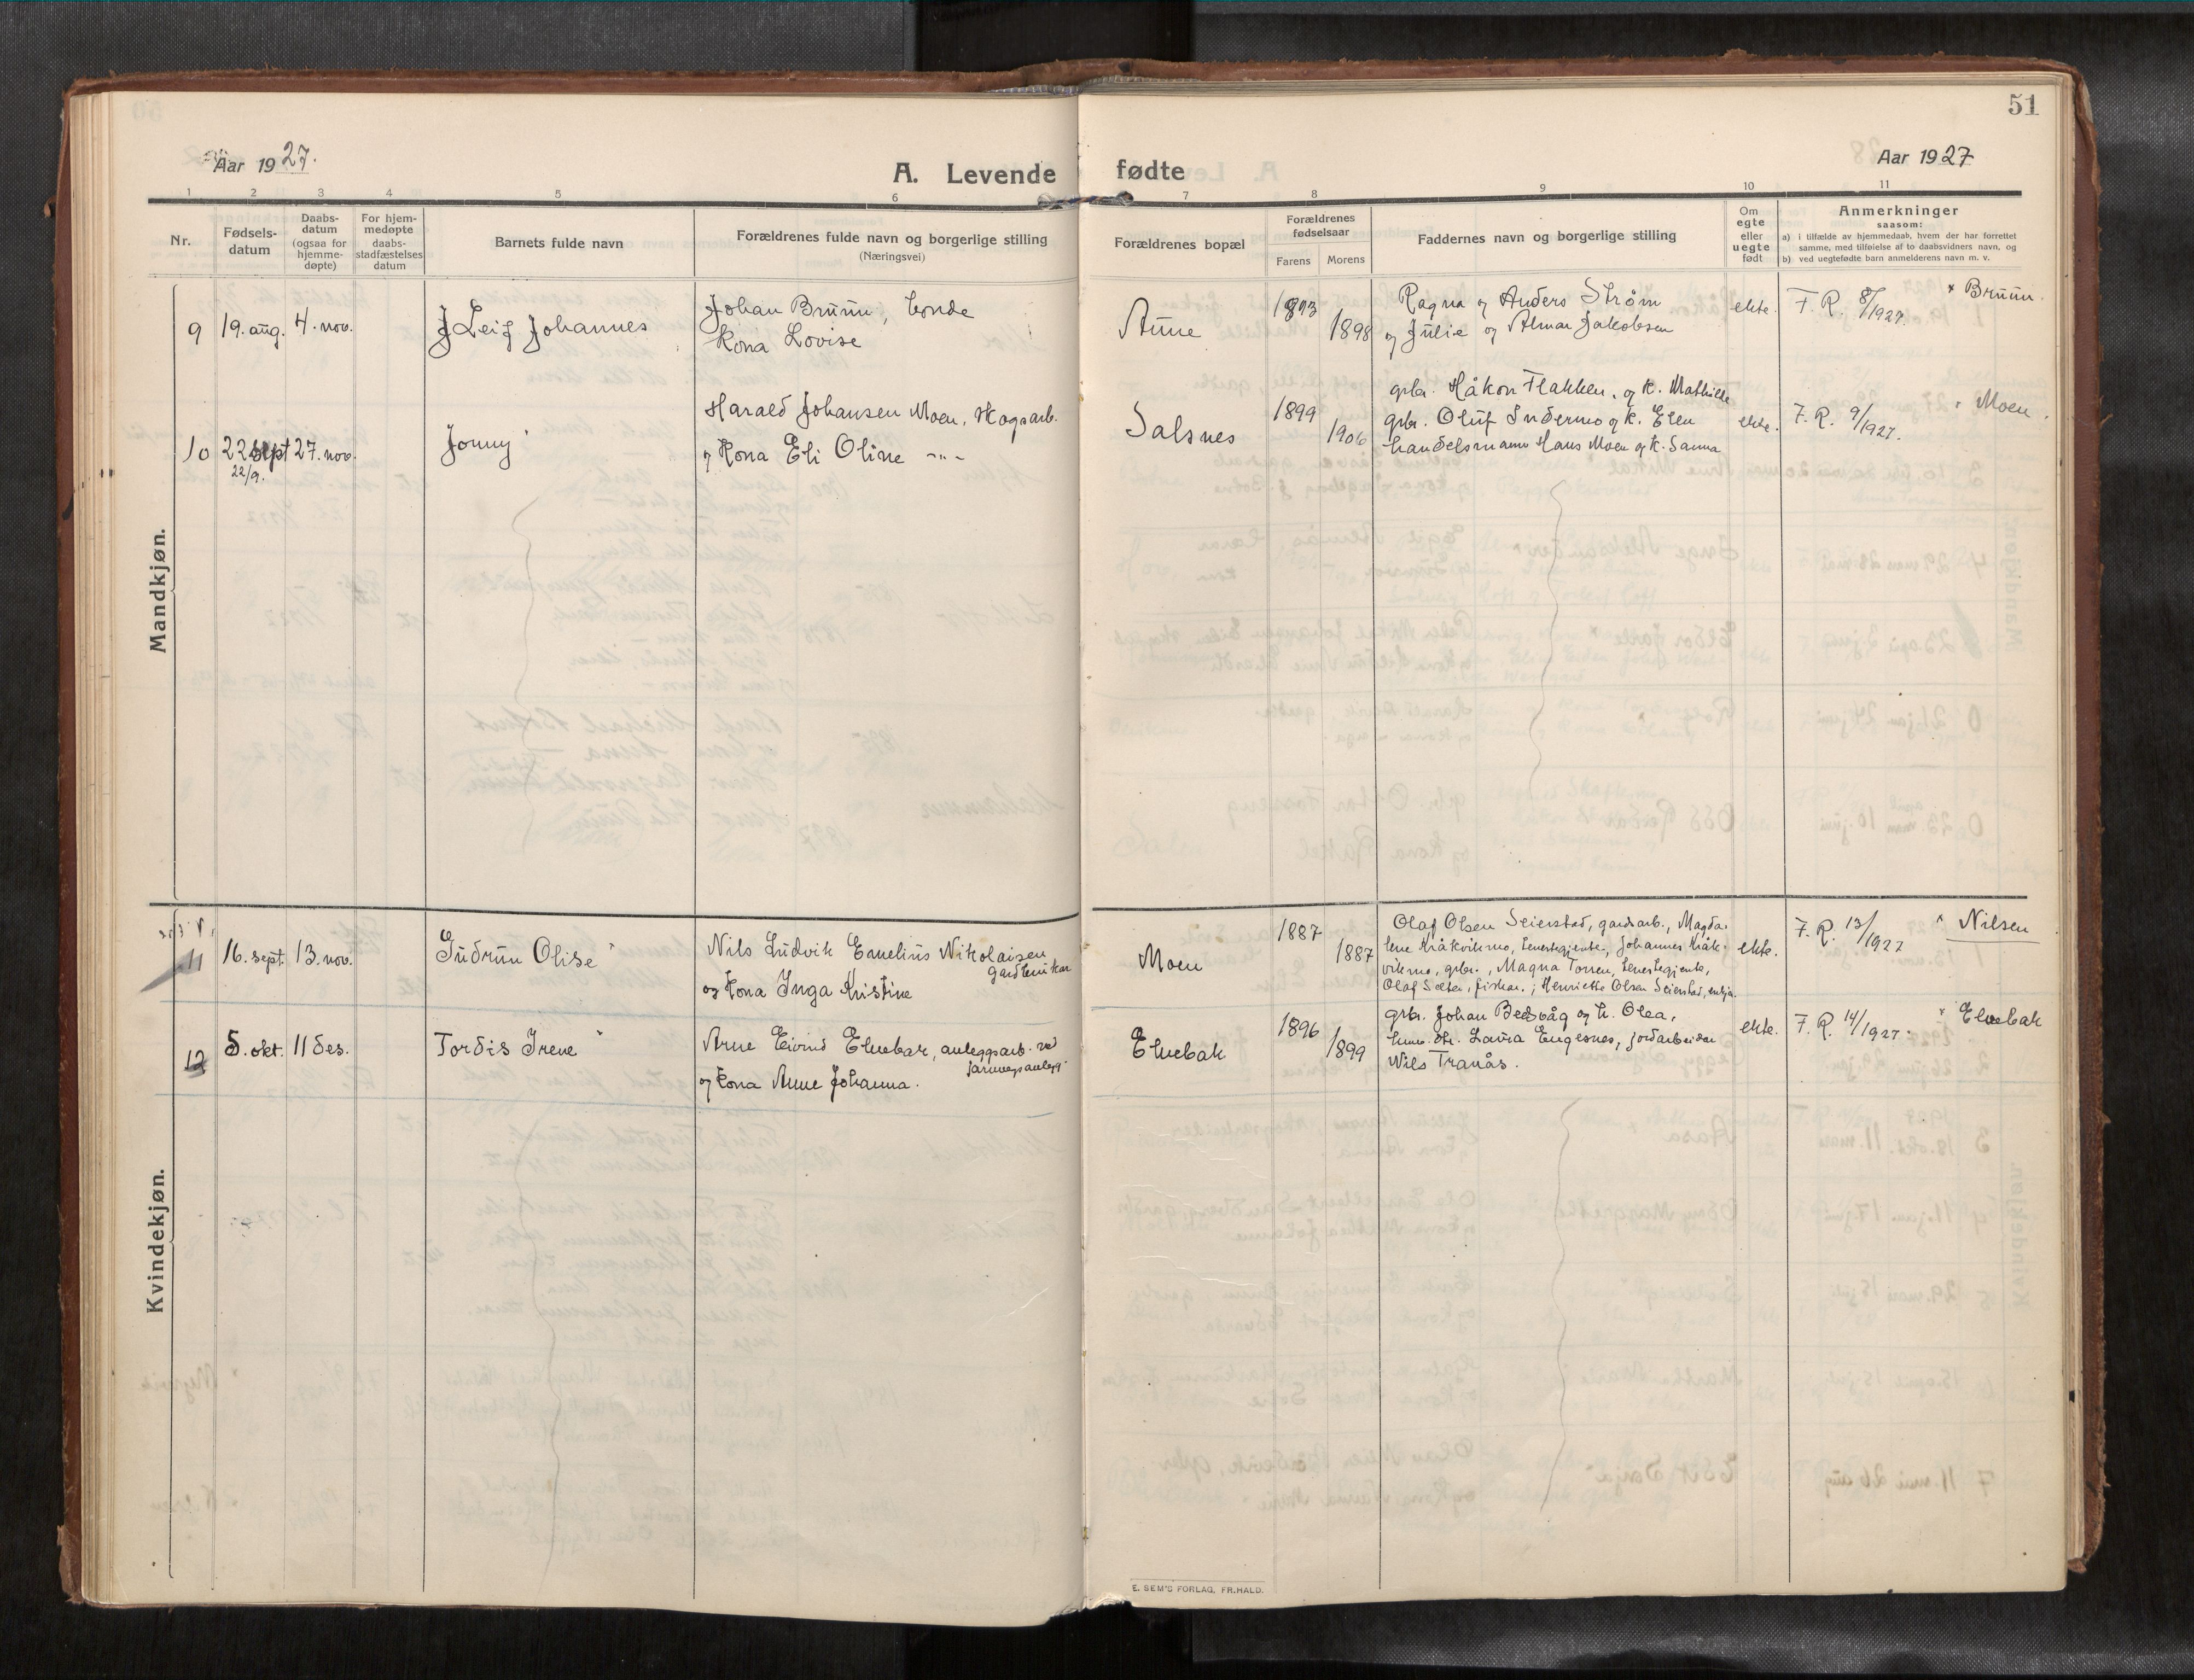 51
Aar 1927.
A. Levende fødte
Aar 1927
1 2 3 4 5 6 7 8 9 10 11
Nr.
Fødsels-
datum
Daabs-
datum
(ogsaa for
hjemme-
døpte)
For hjem-
medøpte
daabs-
stadfæstelses
datum
Barnets fulde navn
Forældrenes fulde navn og borgerlige stilling
(Næringsvei)
Forældrenes bopæl
Forældrenes
fødselsaar
Farens Morens
Faddernes navn og borgerlige stilling
Om
egte
eller
uegte
født
Anmerkninger
saasom:
a) i tilfælde av hjemmedaab, hvem der har forrettet
samme, med tilføielse af to daabsvidners navn, og
b) ved uegtefødte barn anmelderens navn m. v.
Mandkjøn.
9 19. aug. 4. nov.
Leif Johannes
Johan Bruun, bonde
Kona Lovise
Aune
1893
1898
Ragna og Anders Strøm
og Julie og Almar Jakobsen
ekte.
F. R. 8/1927.
× Bruun.
10 22 sept 27. nov.
22/9.
Jonny
Harald Johansen Moen, skogsarb.
og kona Eli Oline -"-
Salsnes
1899
1906
grbr. Håkon Flakken, og k. Mathilde
grbr. Oluf Indermo og k. Elen
handelsmann Hans Moen og k. Sanna
ekte.
F. R. 9/1927.
Moen.
Kvindekjøn.
11 16. sept. 13. nov.
Gudrun Olise
Nils Ludvik Emelius Nikolaisen
gardbrukar
og kona Inga Kristine
Moen
1887
1887
Olaf Olsen Seierstad, gardsarb., Magda-
lene Kråkvikmo, tenestgjente, Johannes Kråk-
vikmo, grbr., Magna Torsen, tenestegjente,
Olaf Sæter, fiskar.; Henriette Olsen Seierstad, enkja.
ekte.
F. R. 13/1927
× Nilsen
12 5. okt. 11 des.
Tordis Irene
Arne Eivind Elvebak, anleggsarb. ved
jarnvegsanlegg
og kona Anne Johanna.
Elvebak
1896
1899
grbr. Johan Bedsvåg og k. Olea,
Lavra Engesnes, jordarbeidar
Nils Tranås.
ekte.
F. R. 14/1927.
Elvebak
E. SEM'S FORLAG, FR.HALD.